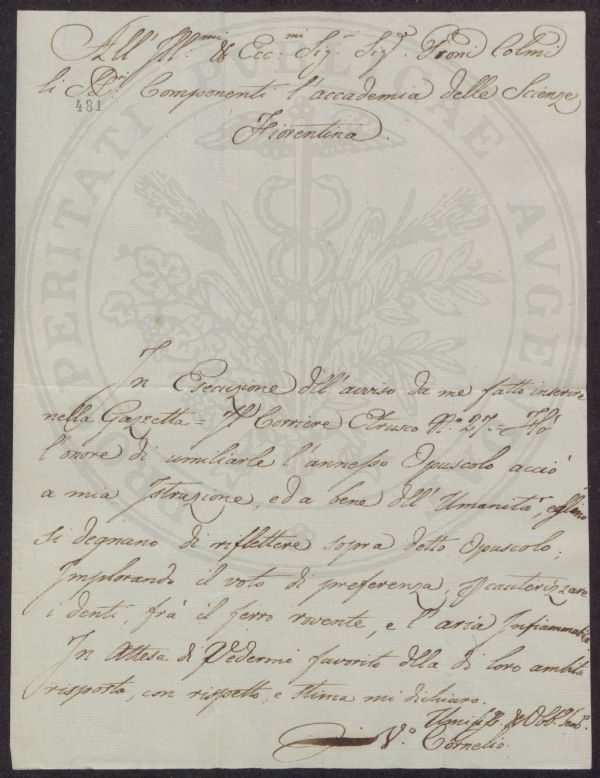 All' Ill.mi & Ecc.mi Sig.ri Sig.ri Proni Colmi
li SS.ri Componenti l'accademia delle Scienze
481
Fiorentina.
In Esecuzione dell'avviso da me fatto inserire
nella Gazzetta = Il Corriere Etrusco N.o 27 = Hò
l'onore di umiliarle l'annesso Opuscolo acciò
a mia Istruzione, ed a bene dell'Umanità, eglino
si degnano di riflettere sopra detto Opuscolo;
Implorando il voto di preferenza, p cauterizzare
i denti, frà il ferro rovente, e l'aria Infiammabile
In Attesa di Vedermi favorito della di loro ambita
risposta, con rispetto, e stima mi dichiaro.
V.o Cornelio
PERITATI PUBLICAE AUGE